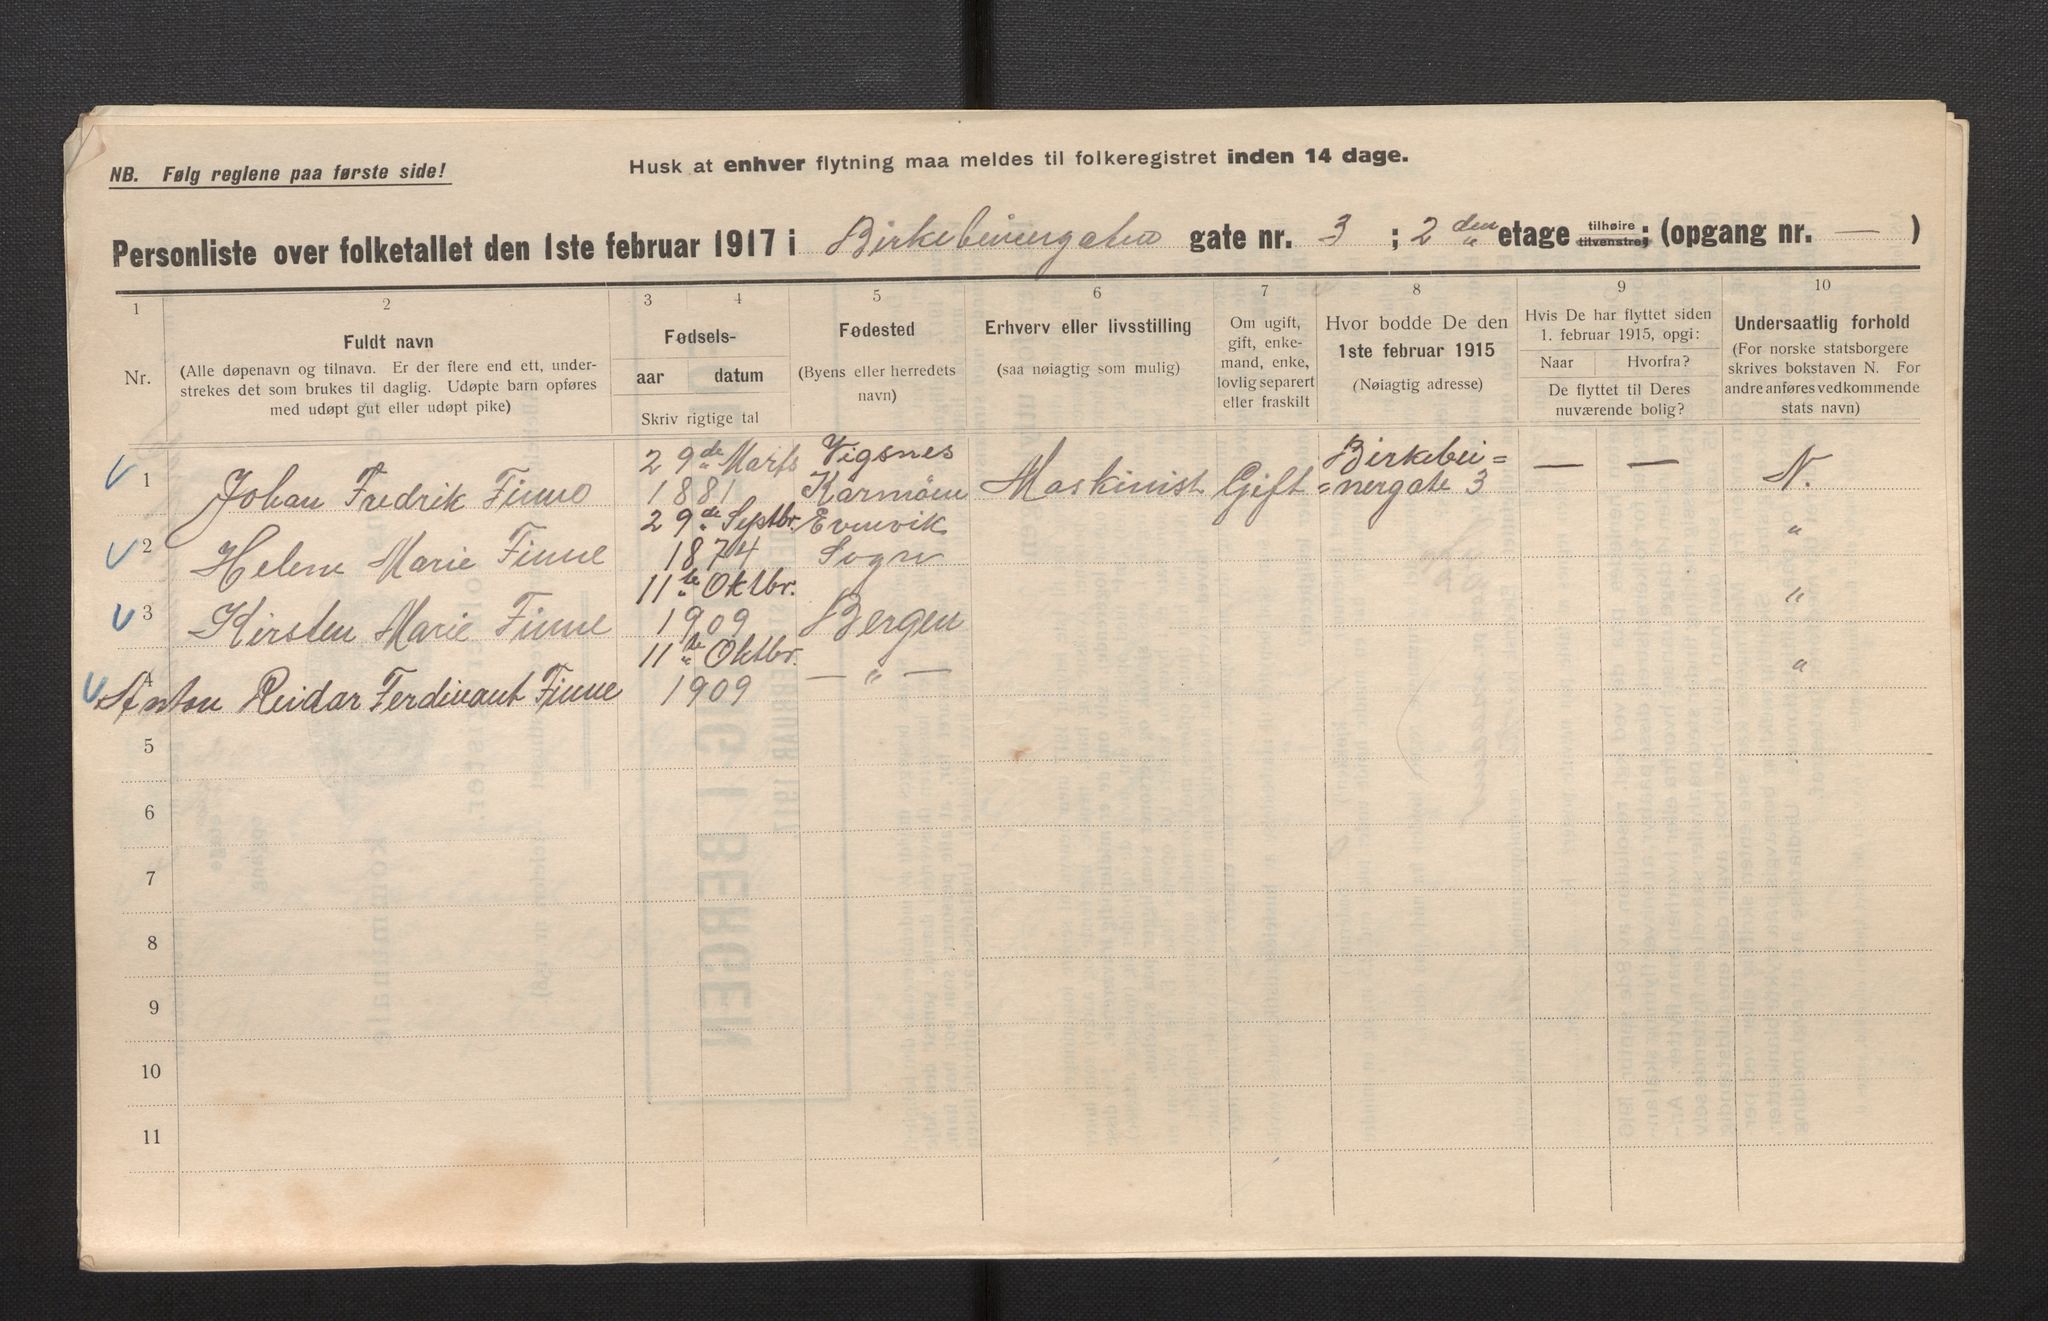 NB. Følg reglene paa første side!
Husk at enhver flytning maa meldes til folkeregistret inden 14 dage.
Personliste over folketallet den 1ste februar 1917 i Birkebeinergaten gate nr. 3 ; 2 den etage tilhøire tilvenstre ; (opgang nr. — )
1 2 3 4 5 6 7 8 9 10
Nr.
Fuldt navn
(Alle døpenavn og tilnavn. Er der flere end ett, under-
strekes det som brukes til daglig. Udøpte barn opføres
med udøpt gut eller udøpt pike)
Fødsels-
aar datum
Skriv rigtige tal
Fødested
(Byens eller herredets
navn)
Erhverv eller livsstilling
(saa nøiagtig som mulig)
Om ugift,
gift, enke-
mand, enke,
lovlig separert
eller fraskilt
Hvor bodde De den
1ste februar 1915
(Nøiagtig adresse)
Hvis De har flyttet siden
1. februar 1915, opgi:
Naar Hvorfra?
De flyttet til Deres
nuværende bolig?
Undersaatlig forhold
(For norske statsborgere
skrives bokstaven N. For
andre anføres vedkommende
stats navn)
29de Marts Vigsnes Birkebei=
1 Johan Fredrik Finne 1881 Karmøen Maskinist Gift =nergate 3 — — N.
29de Septbr. Evenvik "
2 Helene Marie Finne 1874 Sogn
11te Oktbr. "
3 Kirsten Marie Finne 1909 Bergen
11te Oktbr. — " — "
4 Anton Reidar Ferdinant Finne 1909
5
6
7
8
9
10
11